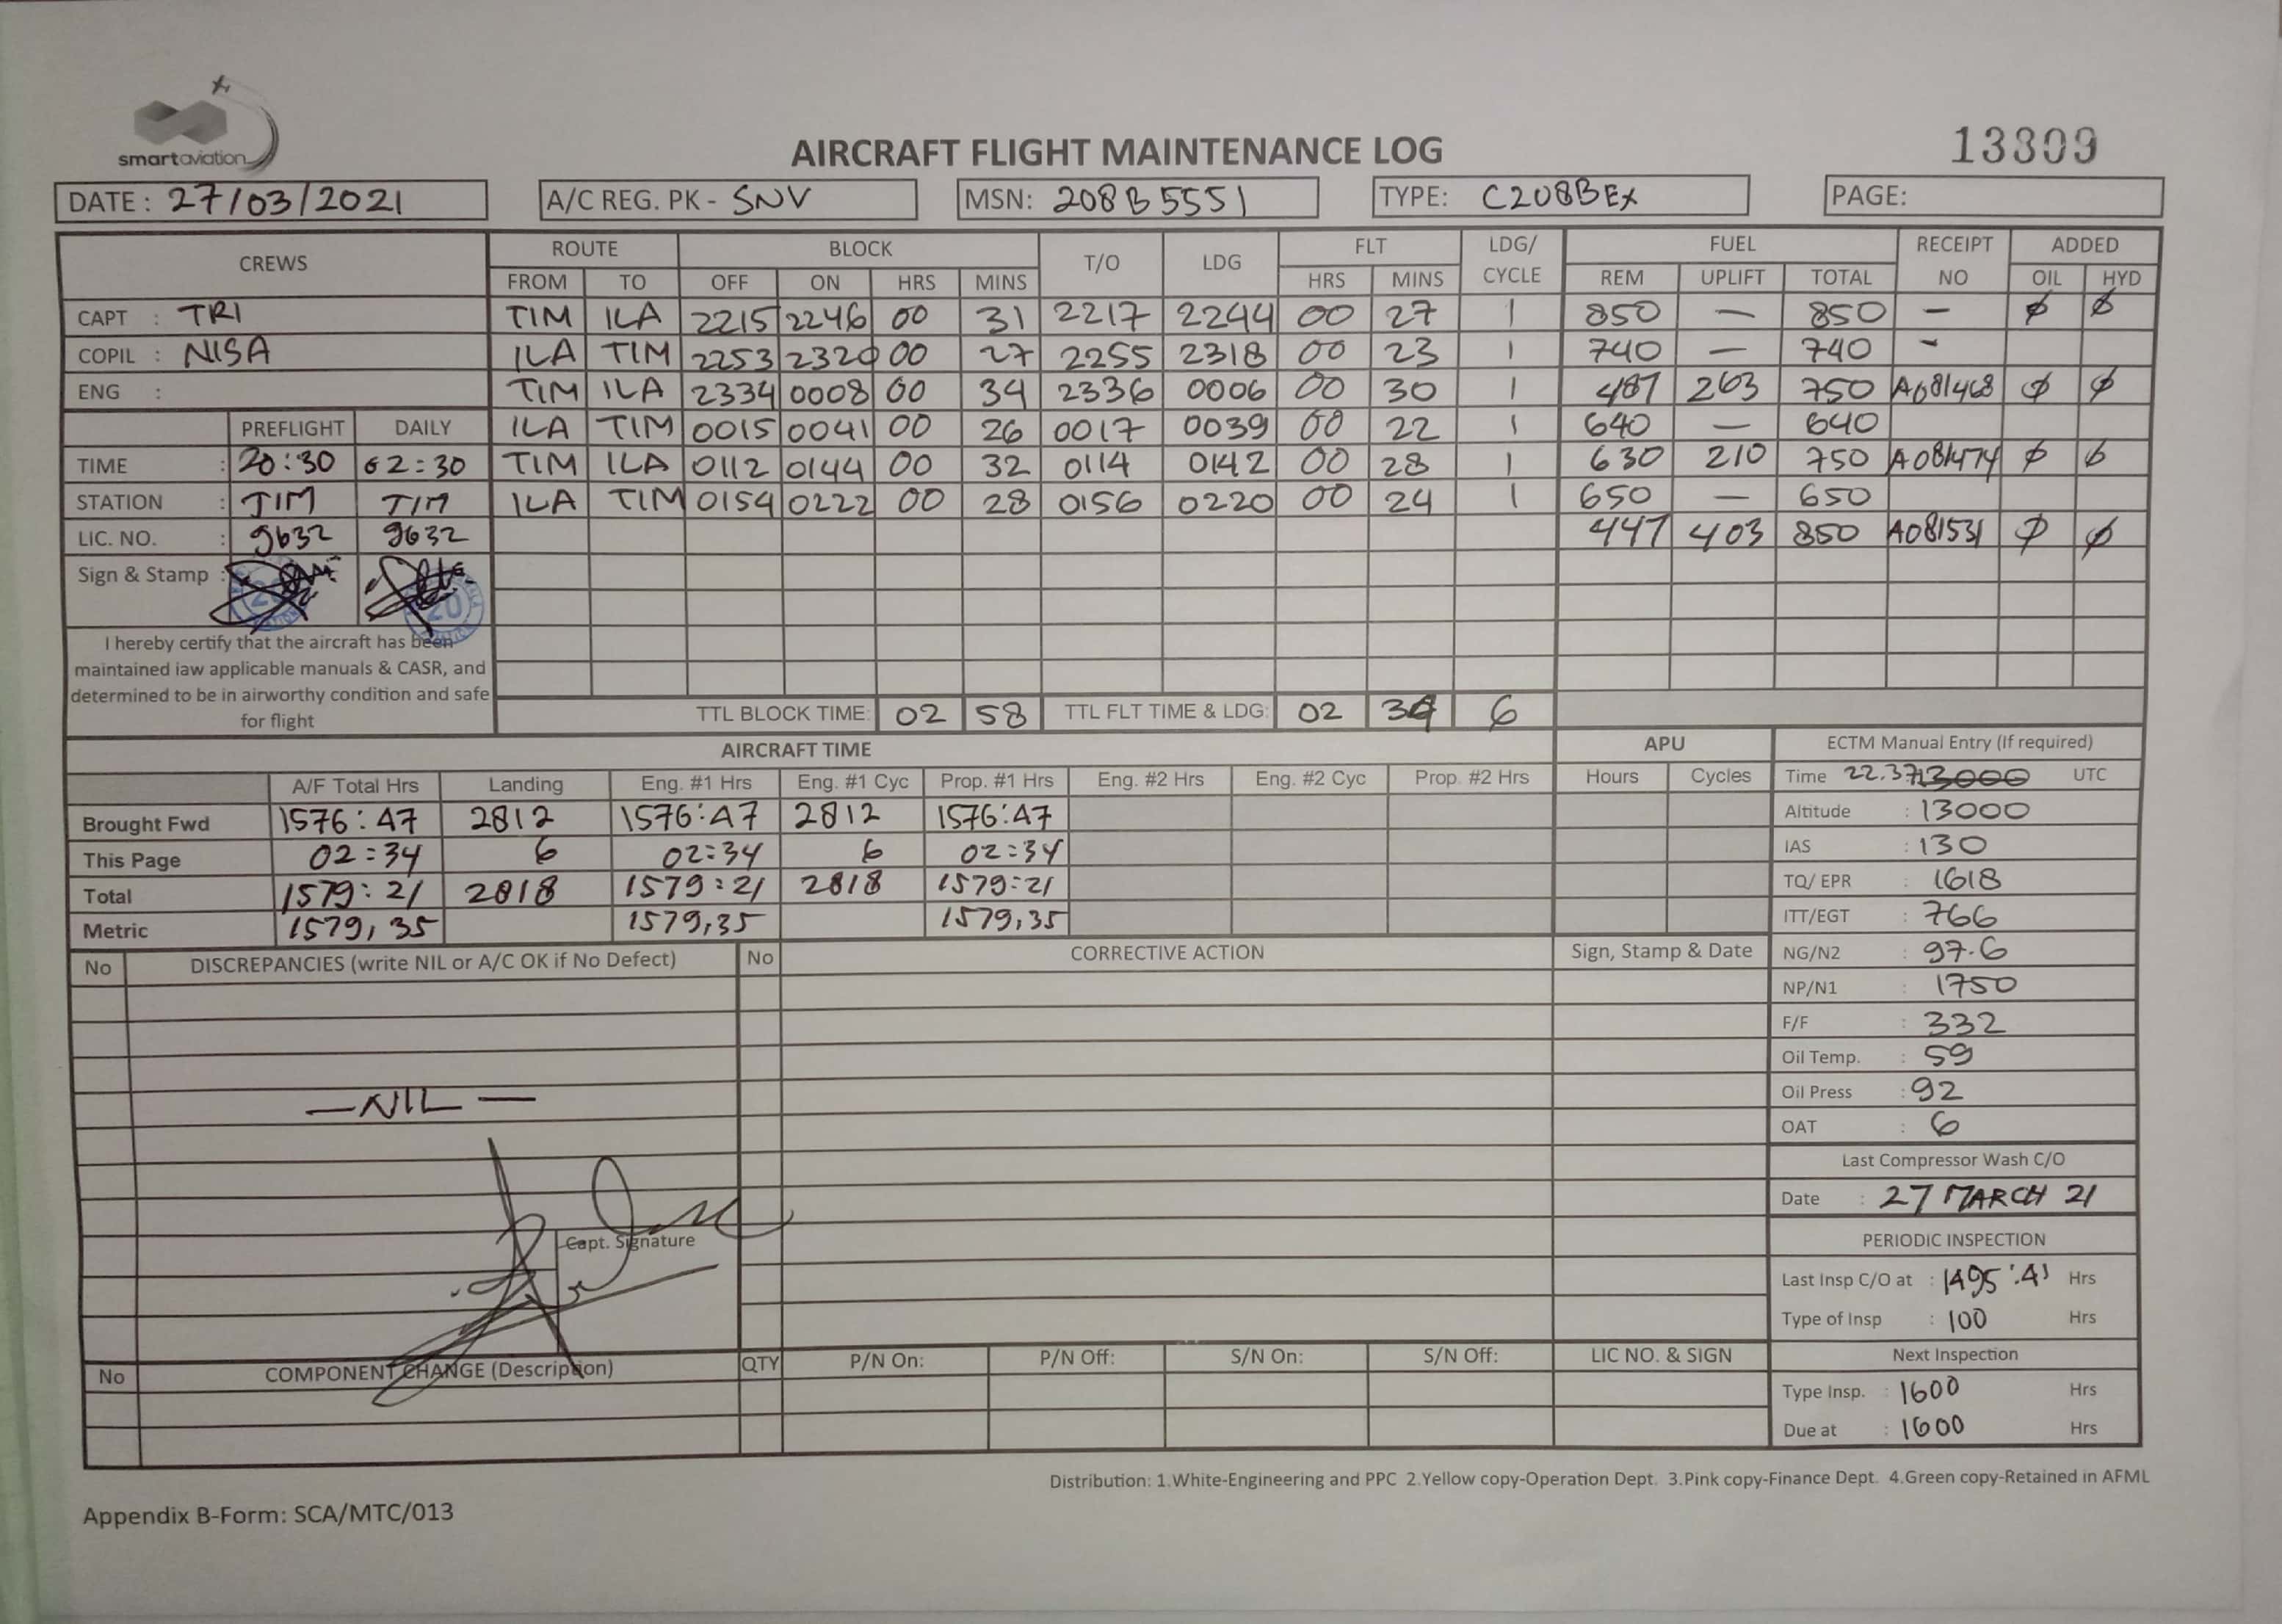 smartaviation
AIRCRAFT FLIGHT MAINTENANCE LOG
13809
DATE : 27/03/2021 A/C REG. PK - SNV MSN: 208B5551 TYPE: C208BEX PAGE:
CREWS ROUTE BLOCK T/O LDG FLT LDG/ FUEL RECEIPT ADDED
FROM TO OFF ON HRS MINS HRS MINS CYCLE REM UPLIFT TOTAL NO OIL HYD
CAPT : TRI TIM ILA 2215 2246 00 31 2217 2244 00 27 1 850 — 850 — ∅ ∅
COPIL : NISA ILA TIM 2253 2320 00 27 2255 2318 00 23 1 740 — 740 -
ENG : TIM ILA 2334 0008 00 34 2336 0006 00 30 1 487 263 750 A081468 ∅ ∅
PREFLIGHT DAILY ILA TIM 0015 0041 00 26 0017 0039 00 22 1 640 — 640
TIME : 20:30 02:30 TIM ILA 0112 0144 00 32 0114 0142 00 28 1 630 210 750 A081474 ∅ ∅
STATION : TIM TIM ILA TIM 0154 0222 00 28 0156 0220 00 24 1 650 — 650
LIC. NO. : 9632 9632 447 403 850 A081531 ∅ ∅
Sign & Stamp :
20
I hereby certify that the aircraft has been
maintained iaw applicable manuals & CASR, and
determined to be in airworthy condition and safe
for flight
TTL BLOCK TIME: 02 58 TTL FLT TIME & LDG: 02 34 6
AIRCRAFT TIME APU ECTM Manual Entry (If required)
A/F Total Hrs Landing Eng. #1 Hrs Eng. #1 Cyc Prop. #1 Hrs Eng. #2 Hrs Eng. #2 Cyc Prop. #2 Hrs Hours Cycles Time 22.37 13000 UTC
Brought Fwd 1576:47 2812 1576:47 2812 1576:47 Altitude : 13000
This Page 02:34 6 02:34 6 02:34 IAS : 130
Total 1579:21 2818 1579:21 2818 1579:21 TQ/ EPR : 1618
Metric 1579,35 1579,35 1579,35 ITT/EGT : 766
No DISCREPANCIES (write NIL or A/C OK if No Defect) No CORRECTIVE ACTION Sign, Stamp & Date NG/N2 : 97.6
NP/N1 : 1750
F/F : 332
Oil Temp. : 59
—NIL— Oil Press : 92
OAT : 6
Last Compressor Wash C/O
Date : 27 MARCH 21
Capt. Signature PERIODIC INSPECTION
Last Insp C/O at : 1495:41 Hrs
Type of Insp : 100 Hrs
No COMPONENT CHANGE (Description) QTY P/N On: P/N Off: S/N On: S/N Off: LIC NO. & SIGN Next Inspection
Type Insp. : 1600 Hrs
Due at : 1600 Hrs
Distribution: 1.White-Engineering and PPC 2.Yellow copy-Operation Dept. 3.Pink copy-Finance Dept. 4.Green copy-Retained in AFML
Appendix B-Form: SCA/MTC/013